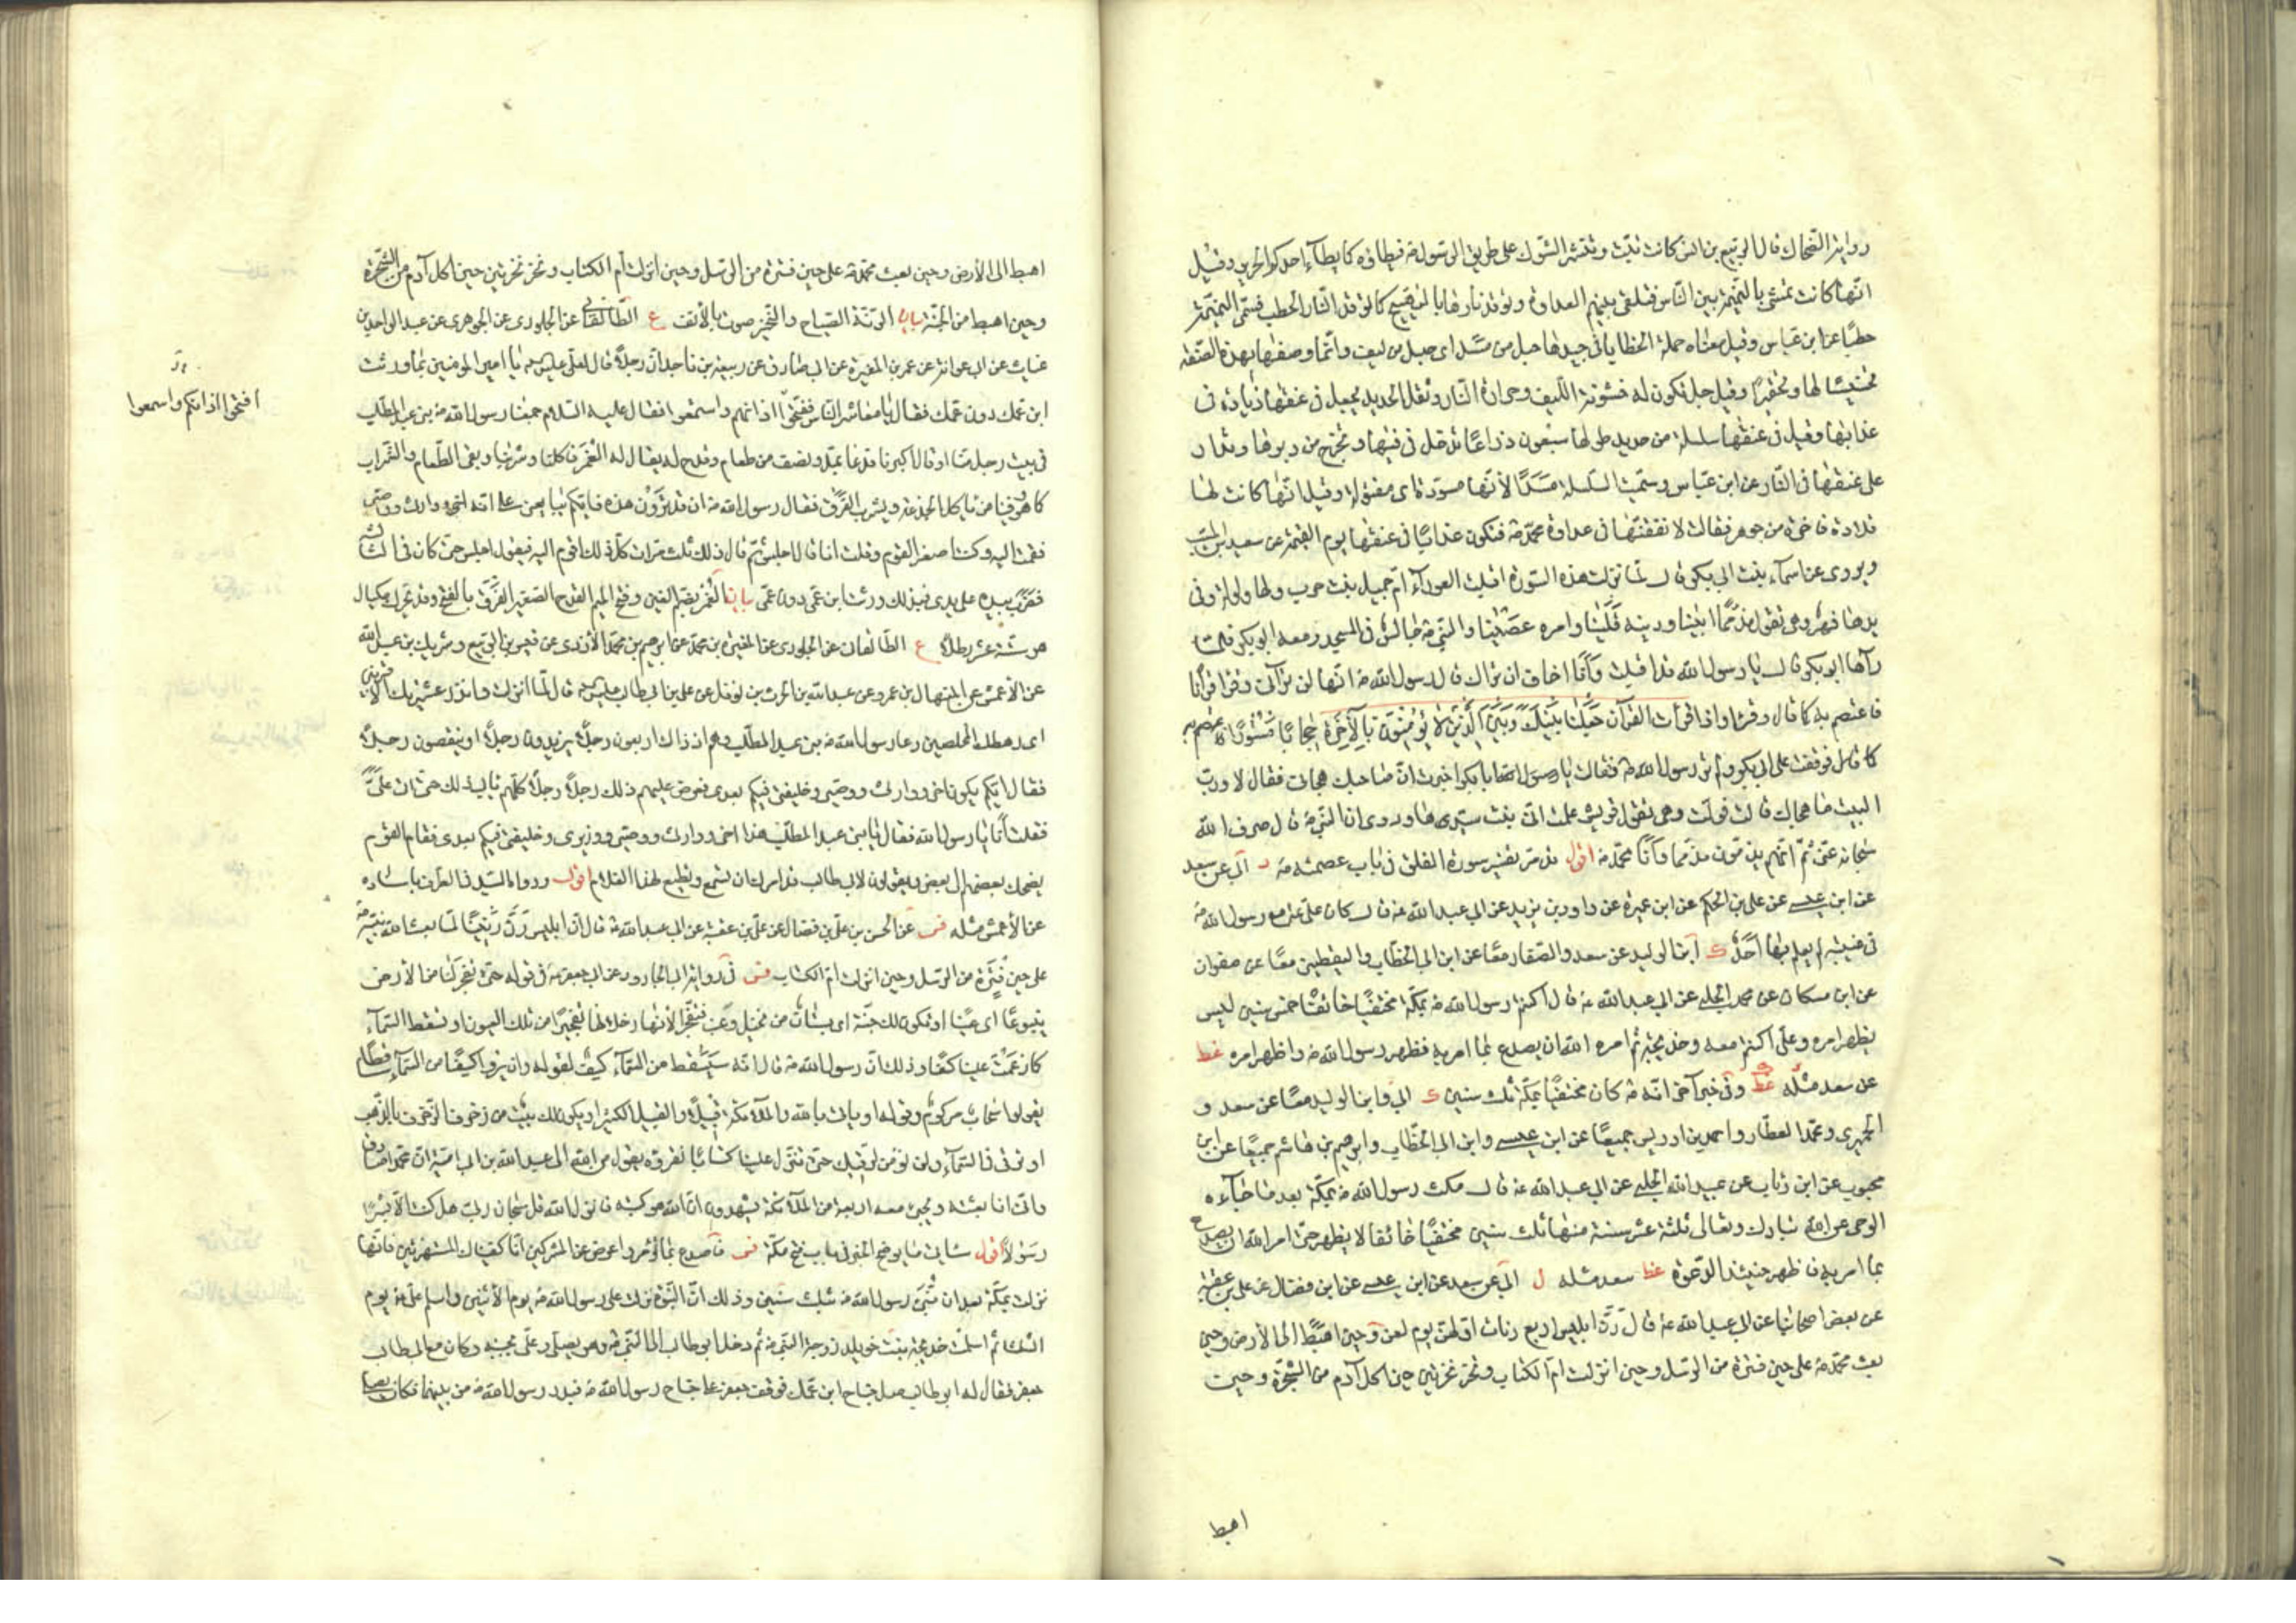 رواية الضحاك قال الربيع بن انس كانت تبث وتنشر الشوك على طريق الرسول ص فيطاؤه كما يطأ احدكم الحرير وقيل
انها كانت تمشى بالنميمة بين الناس فتلقى بينهم العداوة وتوقد نارها بالتهييج كما توقد النار الحطب فسمى النميمة
حطبا عن ابن عباس وقيل معناه حمالة الخطايا فى جيدها حبل من مسد اى حبل من ليف وانما وصفها بهذه الصفة
تخسيسا لها وتحقيرا وقيل حبل تكون له خشونة الليف وحرارة النار وثقل الحديد يجعل فى عنقها زيادة فى
عذابها وقيل فى عنقها سلسلة من حديد طولها سبعون ذراعا تدخل فى فيها وتخرج من دبرها وتدار
على عنقها فى النار عن ابن عباس وسميت السلسلة مسدا لانها ممسودة اى مفتولة وقيل انها كانت لها
قلادة فاخرة من جوهر فقالت لانفقنها فى عداوة محمد ص فتكون عذابا فى عنقها يوم القيمة عن سعيد بن المسيب
ويروى عن اسماء بنت ابى بكر قالت لما نزلت هذه السورة اقبلت العوراء ام جميل بنت حرب ولها ولولة وفى
يدها فهر وهى تقول مذمما ابينا ودينه قلينا وامره عصينا والنبى ص جالس فى المسجد ومعه ابو بكر فلما
رآها ابو بكر قال يا رسول الله قد اقبلت وانا اخاف ان تراك قال رسول الله ص انها لن ترانى وقرا قرآنا
فاعتصم به كما قال وقرا واذا قرات القرآن جعلنا بينك وبين الذين لا يؤمنون بالآخرة حجابا مستورا
فوقفت على ابى بكر ولم تر رسول الله ص فقالت يا ابا بكر اخبرت ان صاحبك هجانى فقال لا ورب
البيت ما هجاك قالت فولت وهى تقول قريش علمت انى بنت سيدها وروى ان النبى ص قال صرف الله
سبحانه عنى ثم انهم يذمون مذمما وانا محمد ص اقول قد مر تفسير سورة الفلق فى باب عصمته ص ابى عن سعد
عن ابن عيسى عن على بن الحكم عن ابن عميرة عن داود بن يزيد عن ابى عبد الله ع قال كان على ع مع رسول الله ص
فى غيبته لم يعلم بها احد ك ابن الوليد عن سعد والصفار معا عن ابن ابى الخطاب واليقطينى معا عن صفوان
عن ابن مسكان عن محمد الحلبى عن ابى عبد الله ع قال اكتتم رسول الله ص بمكة مختفيا خائفا خمس سنين ليس
يظهر امره وعلى اكتتم معه وخديجة ثم امره الله ان يصدع بما امر به فظهر رسول الله ص واظهر امره غط
عن سعد مثله غط وفى خبر آخر انه ص كان مختفيا بمكة ثلث سنين ك ابى وابن الوليد معا عن سعد و
الحميرى ومحمد العطار واحمد بن ادريس جميعا عن ابن عيسى وابن ابى الخطاب وابرهيم بن هاشم جميعا عن ابن
محبوب عن ابن رئاب عن عبيد الله الحلبى عن ابى عبد الله ع قال مكث رسول الله ص بمكة بعد ما جاءه
الوحى عن الله تبارك وتعالى ثلثة عشر سنة منها ثلث سنين مختفيا خائفا لا يظهر حتى امر الله ان يصدع
بما امر به فاظهر حينئذ الدعوة غط سعد مثله ل ابى عن سعد عن ابن عيسى عن ابن فضال عن على بن عقبة
عن بعض اصحابنا عن ابى عبد الله ع قال رن ابليس اربع رنات اولهن يوم لعن وحين اهبط الى الارض وحين
بعث محمد ص على حين فترة من الرسل وحين انزلت ام الكتاب ونخر نخرتين حين اكل آدم من الشجرة وحين
اهبط
اهبط الى الارض وحين بعث محمد ص على حين فترة من الرسل وحين انزلت ام الكتاب ونخر نخرتين حين اكل آدم من الشجرة
وحين اهبط من الجنة بيان الرنة الصياح والنخير صوت بالانف ع الطالقانى عن الجلودى عن الجوهرى عن عبد الواحد بن
غياث عن ابى عوانة عن عمر بن المغيرة عن ابى صادق عن ربيعة بن ناجد ان رجلا قال لعلى عليه السلام يا امير المومنين بما ورثت
ابن عمك دون عمك فقال يا معاشر الناس ففتحوا اذانهم واستمعوا فقال عليه السلام جمعنا رسول الله ص بنى عبد المطلب
افتحوا اذانكم واسمعوا
فى بيت رجل منا او قال اكبرنا فدعا بمد ونصف من طعام وقدح له يقال له الغمر فاكلنا وشربنا وبقى الطعام والشراب
كما هو وفينا من ياكل الجذعة ويشرب الفرق فقال رسول الله ص ان قد ترون هذه فايكم يبايعنى على انه اخى ووارثى ووصيى
فقمت اليه وكنت اصغر القوم وقلت انا قال اجلس ثم قال ذلك ثلث مرات كل ذلك اقوم اليه فيقول اجلس حتى كان فى الثالثة
فضرب بيده على يدى فبذلك ورثت ابن عمى دون عمى بيان الغمر بضم الغين وفتح الميم القدح الصغير الفرق بالفتح وقد تحرك مكيال
هو ستة عشر رطلا ع الطالقانى عن الجلودى عن المغيرة بن محمد عن ابرهيم بن محمد الازدى عن قيس بن الربيع وشريك بن عبد الله
عن الاعمش عن المنهال بن عمرو عن عبد الله بن الحرث بن نوفل عن على بن ابى طالب عليه السلام قال لما انزلت وانذر عشيرتك الاقربين
اى رهطك المخلصين دعا رسول الله ص بنى عبد المطلب وهم اذ ذاك اربعون رجلا يزيدون رجلا او ينقصون رجلا
فقال ايكم يكون اخى ووارثى ووصيى وخليفتى فيكم بعدى فعرض عليهم ذلك رجلا رجلا كلهم يابى ذلك حتى اتى على
فقلت انا يا رسول الله فقال يا بنى عبد المطلب هذا اخى ووارثى ووصيى ووزيرى وخليفتى فيكم بعدى فقام القوم
يضحك بعضهم الى بعض ويقولون لابى طالب قد امرك ان تسمع وتطيع لهذا الغلام اقول وروى السيد فى الطرائف باسناده
عن الاعمش مثله فس عن الحسن بن على بن فضال عن على بن عقبة عن ابى عبد الله ع قال ان ابليس رن رنينا لما بعث الله نبيه ص
على حين فترة من الرسل وحين انزلت ام الكتاب فس فى رواية ابى الجارود عن ابى جعفر ع فى قوله حتى تفجر لنا من الارض
ينبوعا اى عينا او تكون لك جنة اى بستان من نخيل وعنب فتفجر الانهار خلالها تفجيرا من تلك العيون او تسقط السماء
كما زعمت علينا كسفا وذلك ان رسول الله ص قال انه سيسقط من السماء كسف لقوله وان يروا كسفا من السماء ساقطا
يقولوا سحاب مركوم وقوله او ياتى بالله والملائكة قبيلا والقبيل الكثير او يكون لك بيت من زخرف المزخرف بالذهب
او ترقى فى السماء ولن نؤمن لرقيك حتى تنزل علينا كتابا نقرؤه يقول من الله الى عبد الله بن ابى امية ان محمدا صادق
وانى انا بعثته ويجىء معه اربعة من الملائكة يشهدون ان الله هو كتبه فانزل الله قل سبحان ربى هل كنت الا بشرا
رسولا اقول سياتى ما يوضح الخبر فى باب فتح مكة فس فاصدع بما تؤمر واعرض عن المشركين انا كفيناك المستهزئين فانها
نزلت بمكة بعد ان نبئ رسول الله ص بثلث سنين وذلك ان النبوة نزلت على رسول الله ص يوم الاثنين واسلم على ع يوم
الثلثا ثم اسلمت خديجة بنت خويلد زوجة النبى ص ثم دخل ابو طالب الى النبى ص وهو يصلى وعلى بجنبه وكان مع ابى طالب
جعفر فقال له ابو طالب صل جناح ابن عمك فوقف جعفر على جناح رسول الله ص فبدر رسول الله ص من بينهما فكان يصلى